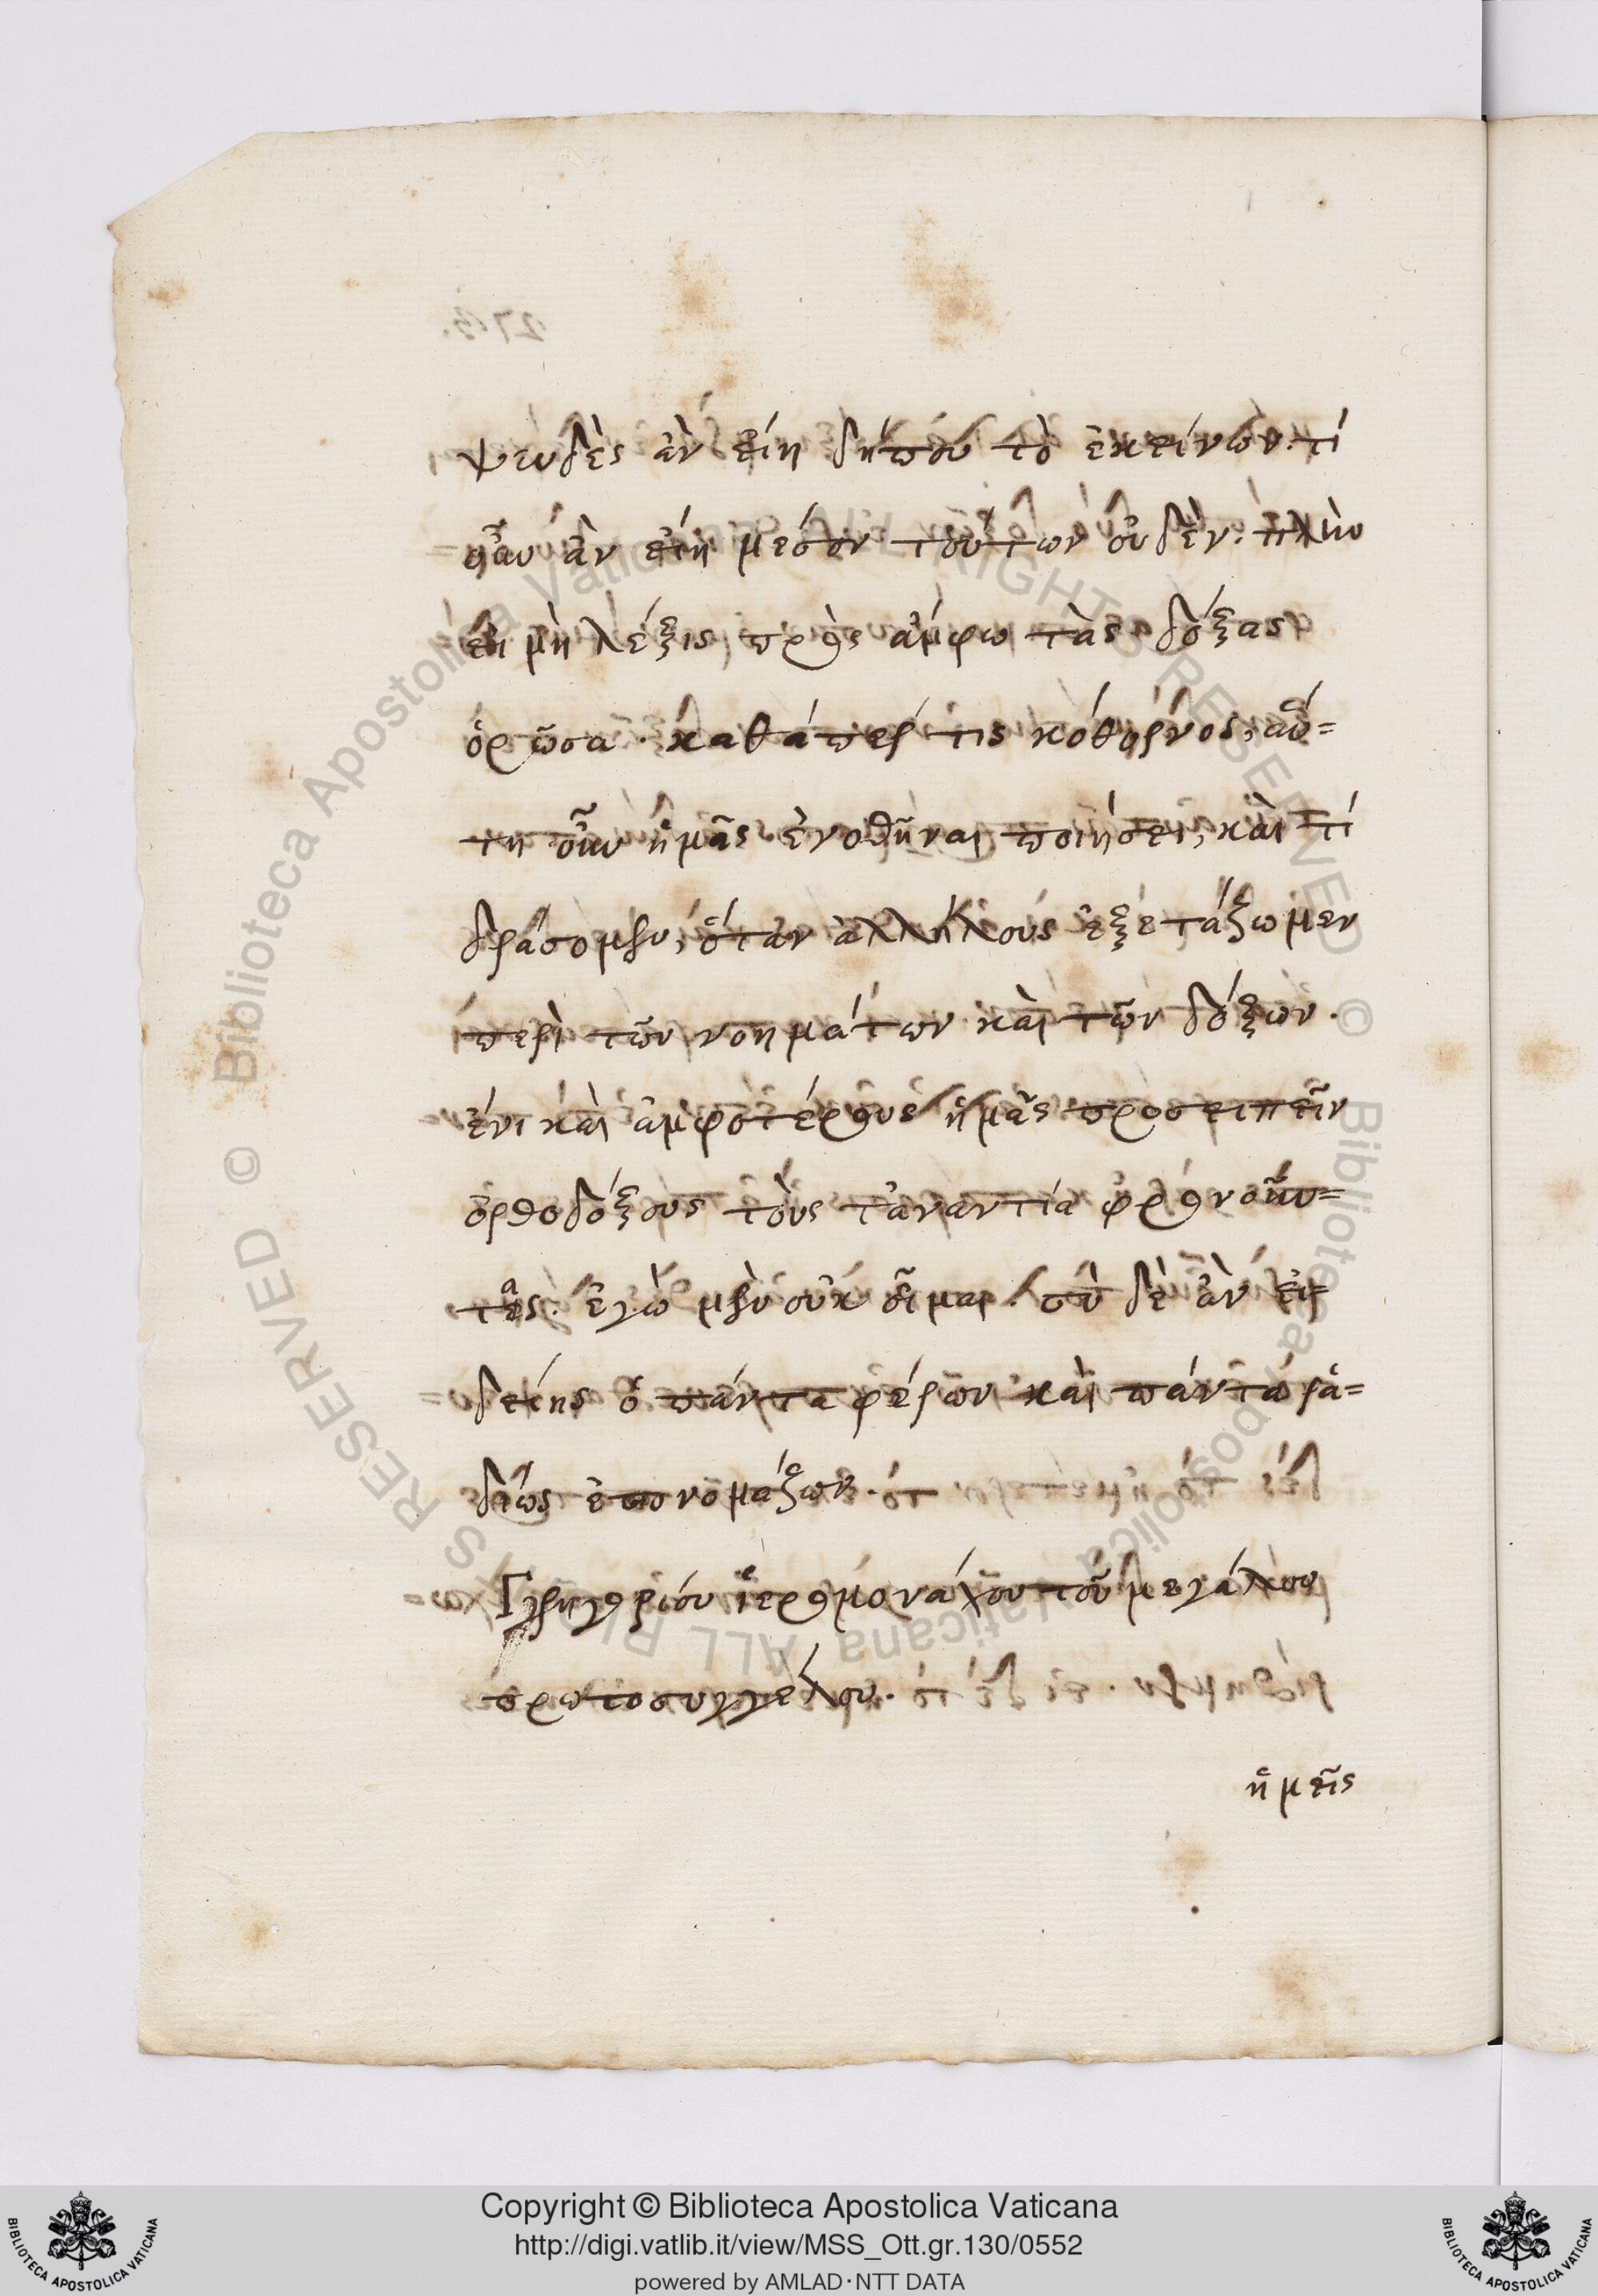 ψευδὲς ἂν εἴη δήπου τὸ ἐκείνων. τί
οὖν ἂν εἴη μέσον τούτων οὐδὲν. πλὴν
εἰ μὴ λέξις, πρὸς ἄμφω τὰς δόξας
ὁρῶσα. καθάπερ τις κόθορνος, αὕ=
τη οὖν ἡμᾶς ἑνοθῆναι ποιήσει, καὶ τί
δράσομεν, ὅταν ἀλλήλους ἐξετάζωμεν
περὶ τῶν νοημάτων καὶ τῶν δόξων.
ἔνι καὶ ἀμφοτέρους ἡμᾶς προσειπεῖν
ὀρθοδόξους τοὺς τἀναντία φρονοῦν=
τας. ἐγὼ μὲν οὐκ οἶμαι. σὺ δὲ ἂν εἰ=
δείης ὁ πάντα φέρων καὶ πάντα ῥᾳ=
δίως ἐπονομάζων.
Γρηγορίου ἱερομονάχου τοῦ μεγάλου
πρωτοσυγγέλου.
ἡμεῖς
© Biblioteca Apostolica Vaticana ALL RIGHTS RESERVED © Biblioteca Apostolica Vaticana ALL RIGHTS RESERVED
Copyright © Biblioteca Apostolica Vaticana
http://digi.vatlib.it/view/MSS_Ott.gr.130/0552
powered by AMLAD·NTT DATA
BIBLIOTECA APOSTOLICA VATICANA
BIBLIOTECA APOSTOLICA VATICANA